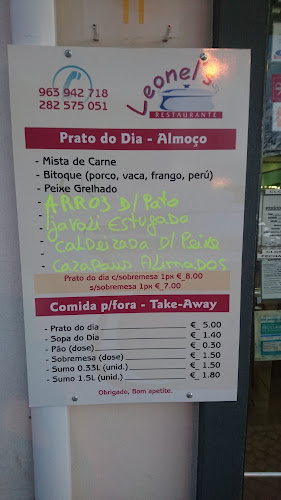 963 942 718
282 575 051
Leonel's
RESTAURANTE
Prato do Dia - Almoço
- Mista de Carne
- Bitoque (porco, vaca, frango, perú)
- Peixe Grelhado
- ARROS D/Pato
- Javali Estugado
- CALDEIRADA D/Peixe
- CARAPAUS ALIMADOS
Prato do dia c/sobremesa 1px €_8.00
s/sobremesa 1px €_7.00
Comida p/fora - Take-Away
- Prato do dia €_ 5.00
- Sopa do Dia €_ 1.40
- Pão (dose) €_ 0.30
- Sobremesa (dose) €_ 1.50
- Sumo 0.33L (unid.) €_ 1.50
- Sumo 1.5L (unid.) €_ 1.80
Obrigado, Bom apetite.